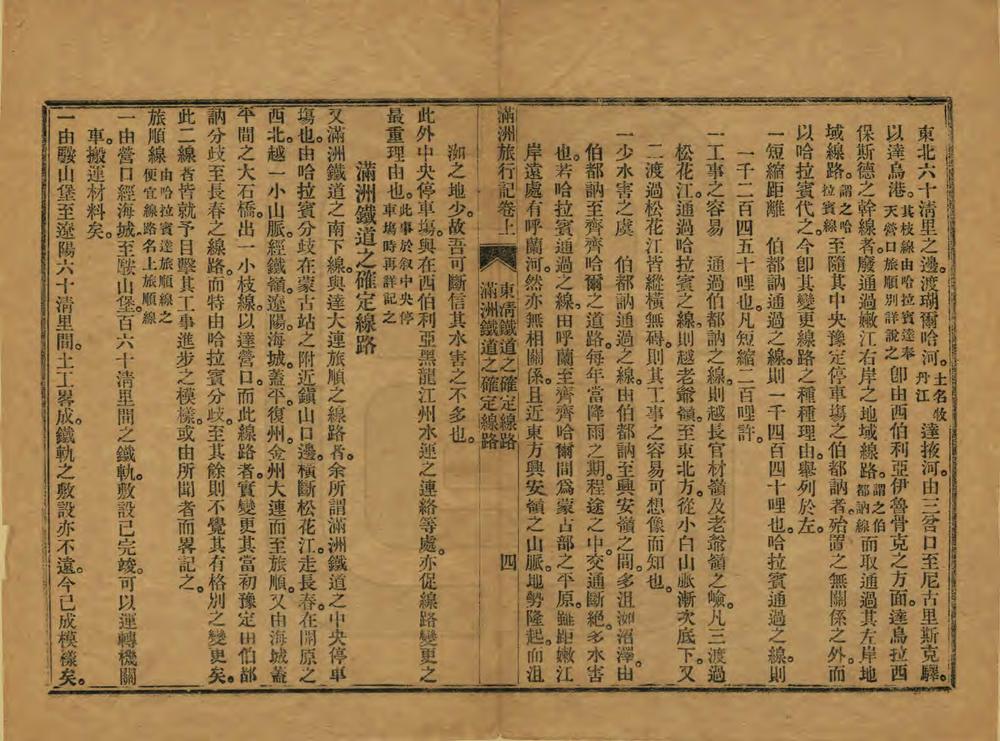 東北六十清里之邊。渡瑚爾哈河。土名牧丹江達掖河。由三岔口至尼古里斯克驛。
以達烏港。其枝線由哈拉賓達奉天營口旅順別詳說之卽由西伯利亞伊魯骨克之方面。達烏拉西
保斯德之幹線者。廢通過嫩江右岸之地域線路。謂之伯都訥線而取通過其左岸地
域線路。謂之哈拉賓線至隨其中央豫定停車塲之伯都訥者。殆置之無關係之外。而
以哈拉賓代之。今卽其變更線路之種種理由。舉列於左。
一短縮距離 伯都訥通過之線。則一千四百四十哩也。哈拉賓通過之線。則
一千二百四五十哩也。凡短縮二百哩許。
一工事之容易 通過伯都訥之線。則越長官材嶺及老爺嶺之嶮。凡三渡過
松花江。通過哈拉賓之線。則越老爺嶺。至東北方。從小白山脈漸次底下。又
二渡過松花江。皆縱橫無碍。則其工事之容易可想像而知也。
一少水害之虞 伯都訥通過之線。由伯都訥至興安嶺之間。多沮洳沼澤。由
伯都訥至齊齊哈爾之道路。每年當降雨之期。程途之中。交通斷絕。多水害
也。若哈拉賓通過之線。由呼蘭至齊齊哈爾間。爲蒙古部之平原。雖距嫩江
岸遠處有呼蘭河。然亦無相關係。且近東方興安嶺之山脈。地勢隆起。而沮
滿洲旅行記卷上 東淸鐵道之確定線路 滿洲鐵道之確定線路 四
洳之地少。故吾可斷信其水害之不多也。
此外中央停車塲。與在西伯利亞黑龍江州水運之連絡等處。亦促線路變更之
最重理由也。此事於叙中央停車塲時再詳記之
滿洲鐵道之確定線路
又滿洲鐵道之南下線。與達大連旅順之線路者。余所謂滿洲鐵道之中央停車
塲也。由哈拉賓分歧。在蒙古站之附近鎭山口邊。橫斷松花江。走長春。在開原之
西北。越一小山脈。經鐵嶺。遼陽。海城。蓋平。復州。金州。大連。而至旅順。又由海城蓋
平間之大石橋。出一小枝線。以達營口。而此線路者。實變更其當初豫定由伯都
訥分歧。至長春之線路。而特由哈拉賓分歧。至其餘則不覺其有格別之變更矣。
此二線者。皆就予目擊其工事進步之模樣。或由所聞者而畧記之。
旅順線 由哈拉賓達旅順線之便宜線路名上旅順線
一由營口經海城至鞍山堡。百六十清里間之鐵軌。敷設已完竣。可以運轉機關
車。搬運材料矣。
一由鞍山堡至遼陽。六十清里間。土工畧成。鐵軌之敷設亦不遠。今已成模樣矣。